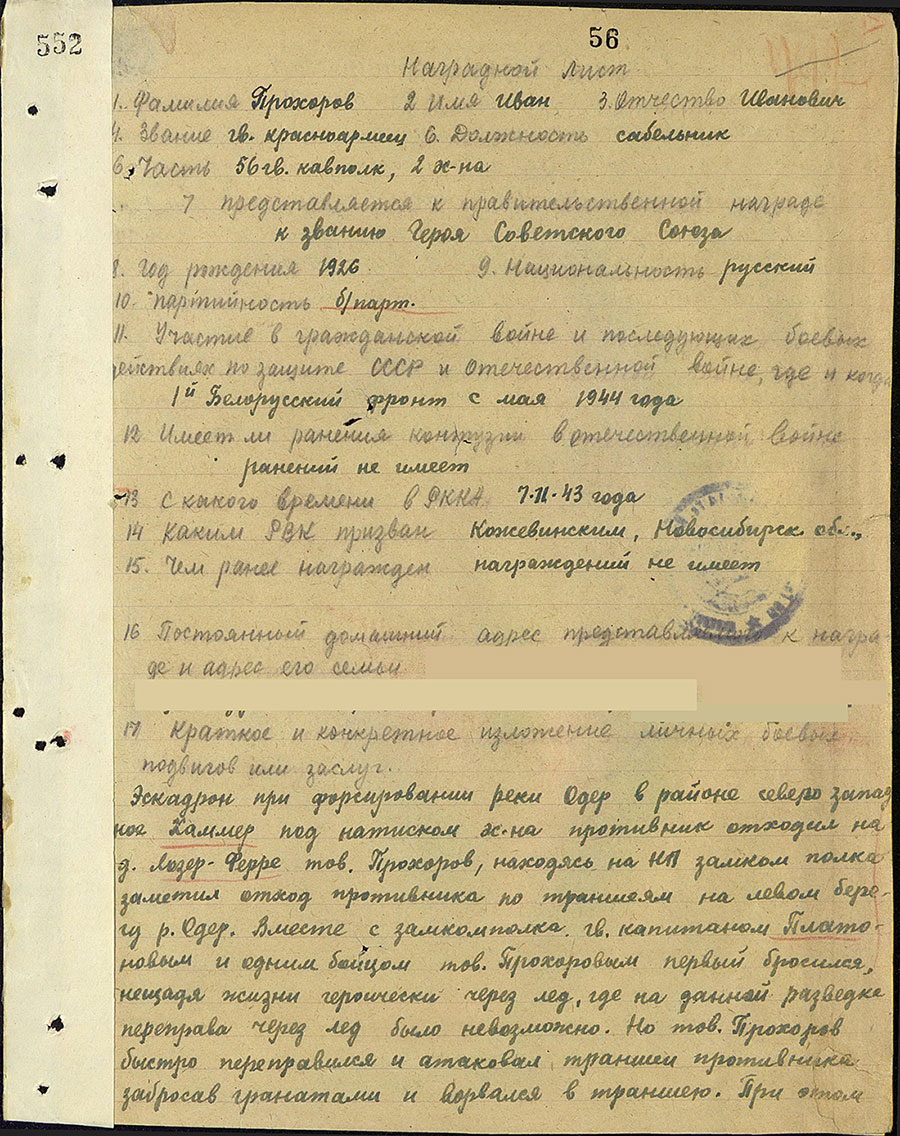 552
56
Наградной Лист
1. Фамилия Прохоров 2 Имя Иван 3. Отчество Иванович
4. Звание гв. красноармеец 6. Должность сабельник
6. Часть 56 гв. кавполк, 2 эк-на
7 представляется к правительственной награде
к званию Героя Советского Союза
8. Год рождения 1926 9. Национальность русский
10. партийность б/парт.
11. Участие в гражданской войне и последующих боевых
действиях по защите СССР и отечественной войне, где и когда
1й Белорусский фронт с мая 1944 года
12 Имеет ли ранения контузии в отечественной войне
ранений не имеет
13 с какого времени в РККА 7·11·43 года
14 каким РВК призван Кожевинским, Новосибирск обл.,
15. Чем ранее награжден награждений не имеет
16 Постоянный домашний адрес представляемого к награ-
де и адрес его семьи
17 Краткое и конкретное изложение личных боевых
подвигов или заслуг.
Эскадрон при форсировании реки Одер в районе северо запад
нее Каммер под натиском эк-на противник отходил на
д. Лозер-Ферре тов. Прохоров, находясь на НП замком полка
заметил отход противника по траншеям на левом бере-
гу р. Одер. Вместе с замкомполка гв. капитаном Плато-
новым и одним бойцом тов. Прохоровым первый бросился,
нещадя жизни героически через лед, где на данной разведке
переправа через лед было невозможно. Но тов. Прохоров
быстро переправился и атаковал траншеи противника
забросав гранатами и ворвался в траншею. При этом